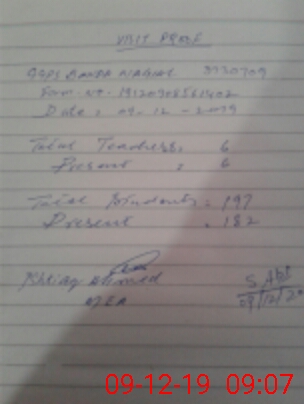 VISIT PROOF
GGPS BANDA NAGIAL 3730709
Form No. - 19120908561402
Date: 09-12-2019
Total Teachers: 6
Present : 6
Total Students: 197
Present : 182
Ishtiaq Ahmed
MEA
09-12-19 09:07